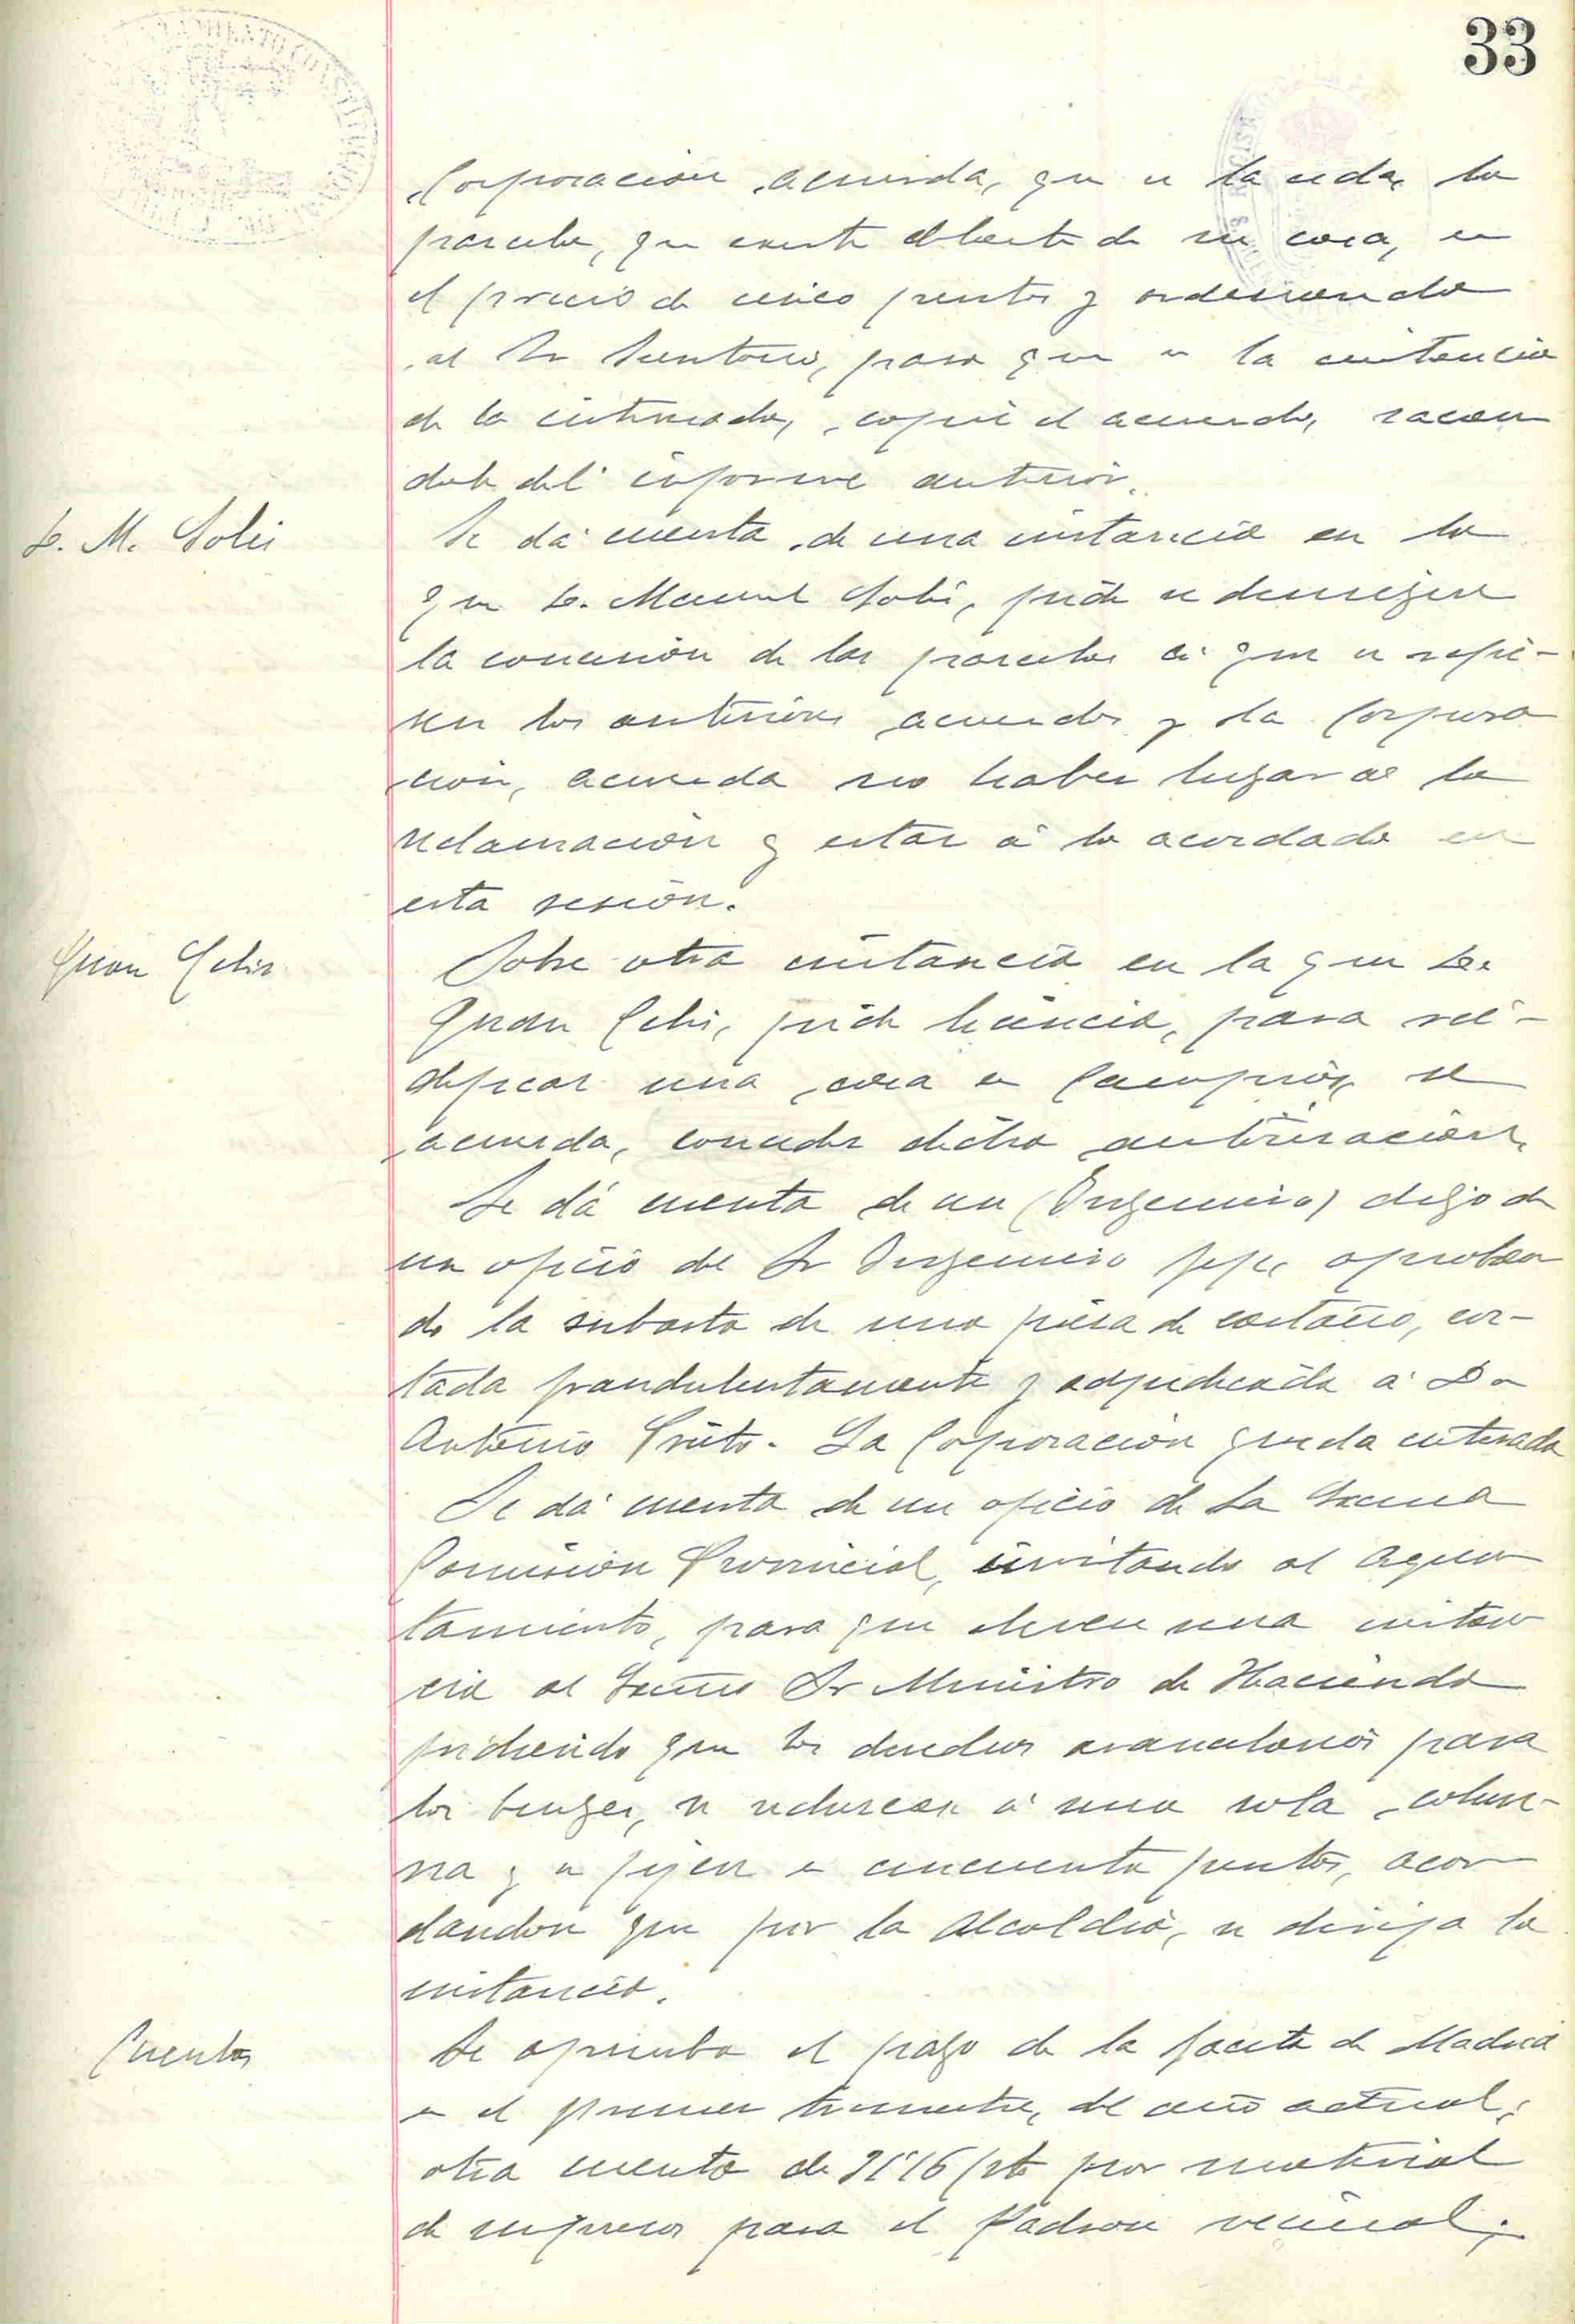 33
Corporacion acuerda, que se la ceda, la
parcela, que existe delante de su casa, en
el precio de cinco pesetas y ordenando
al Sr Secretario, para que en la instancia
de la interesada, copie el acuerdo, sacan
dole del informe anterior.
D. M. Solis
Se dá cuenta de una instancia en la
que D. Manuel Solis, pide se deniegue
la concesión de las parcelas á que se refie-
ren los anteriores acuerdos y la Corpora
cion, acuerda no haber lugar a la
reclamacion y estar á lo acordado en
esta sesión.
Juan Celis
Sobre otra instancia en la que D.
Juan Celis, pide licencia, para ree-
dificar una casa en se
acuerda, conceder dicha autorizacion.
Se dá cuenta de un (Ingeniero) digo de
un oficio del Sr Ingeniero Jefe, aproban
do la subasta de una pieza de castaño, cor-
tada fraudulentamente y adjudicada á Dn
Antonio Prieto. La Coporacion queda enterada
Se dá cuenta de un oficio de la Excma
Comision Provincial, invitando al Ayun
tamiento, para que eleven una instan
cia al Excmo Sr Ministro de Hacienda
pidiendo que los derechos arancelarios para
los se reduzcan á una sola colum-
na y se fijen en cincuenta pesetas, acor
dandose que por la Alcaldía, se dirija la
instancia.
Cuentas
Se aprueba el pago de la Gaceta de Madrid
en el primer trimestre, del año actual;
otra cuenta de pts por material
de impresos para el Padron vecinal;